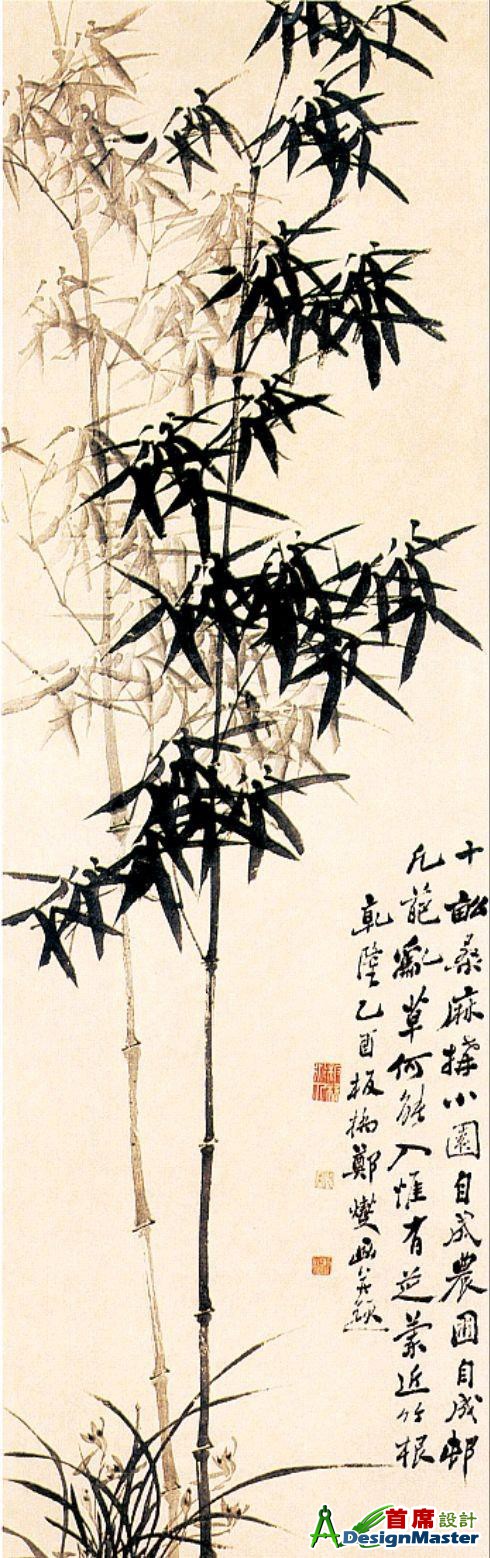 十畝桑麻搆小園自成農圃自成邨
凡葩亂草何能入惟有芝蘭近竹根
乾隆乙酉板橋鄭燮畫并題
首席設計
DesignMaster